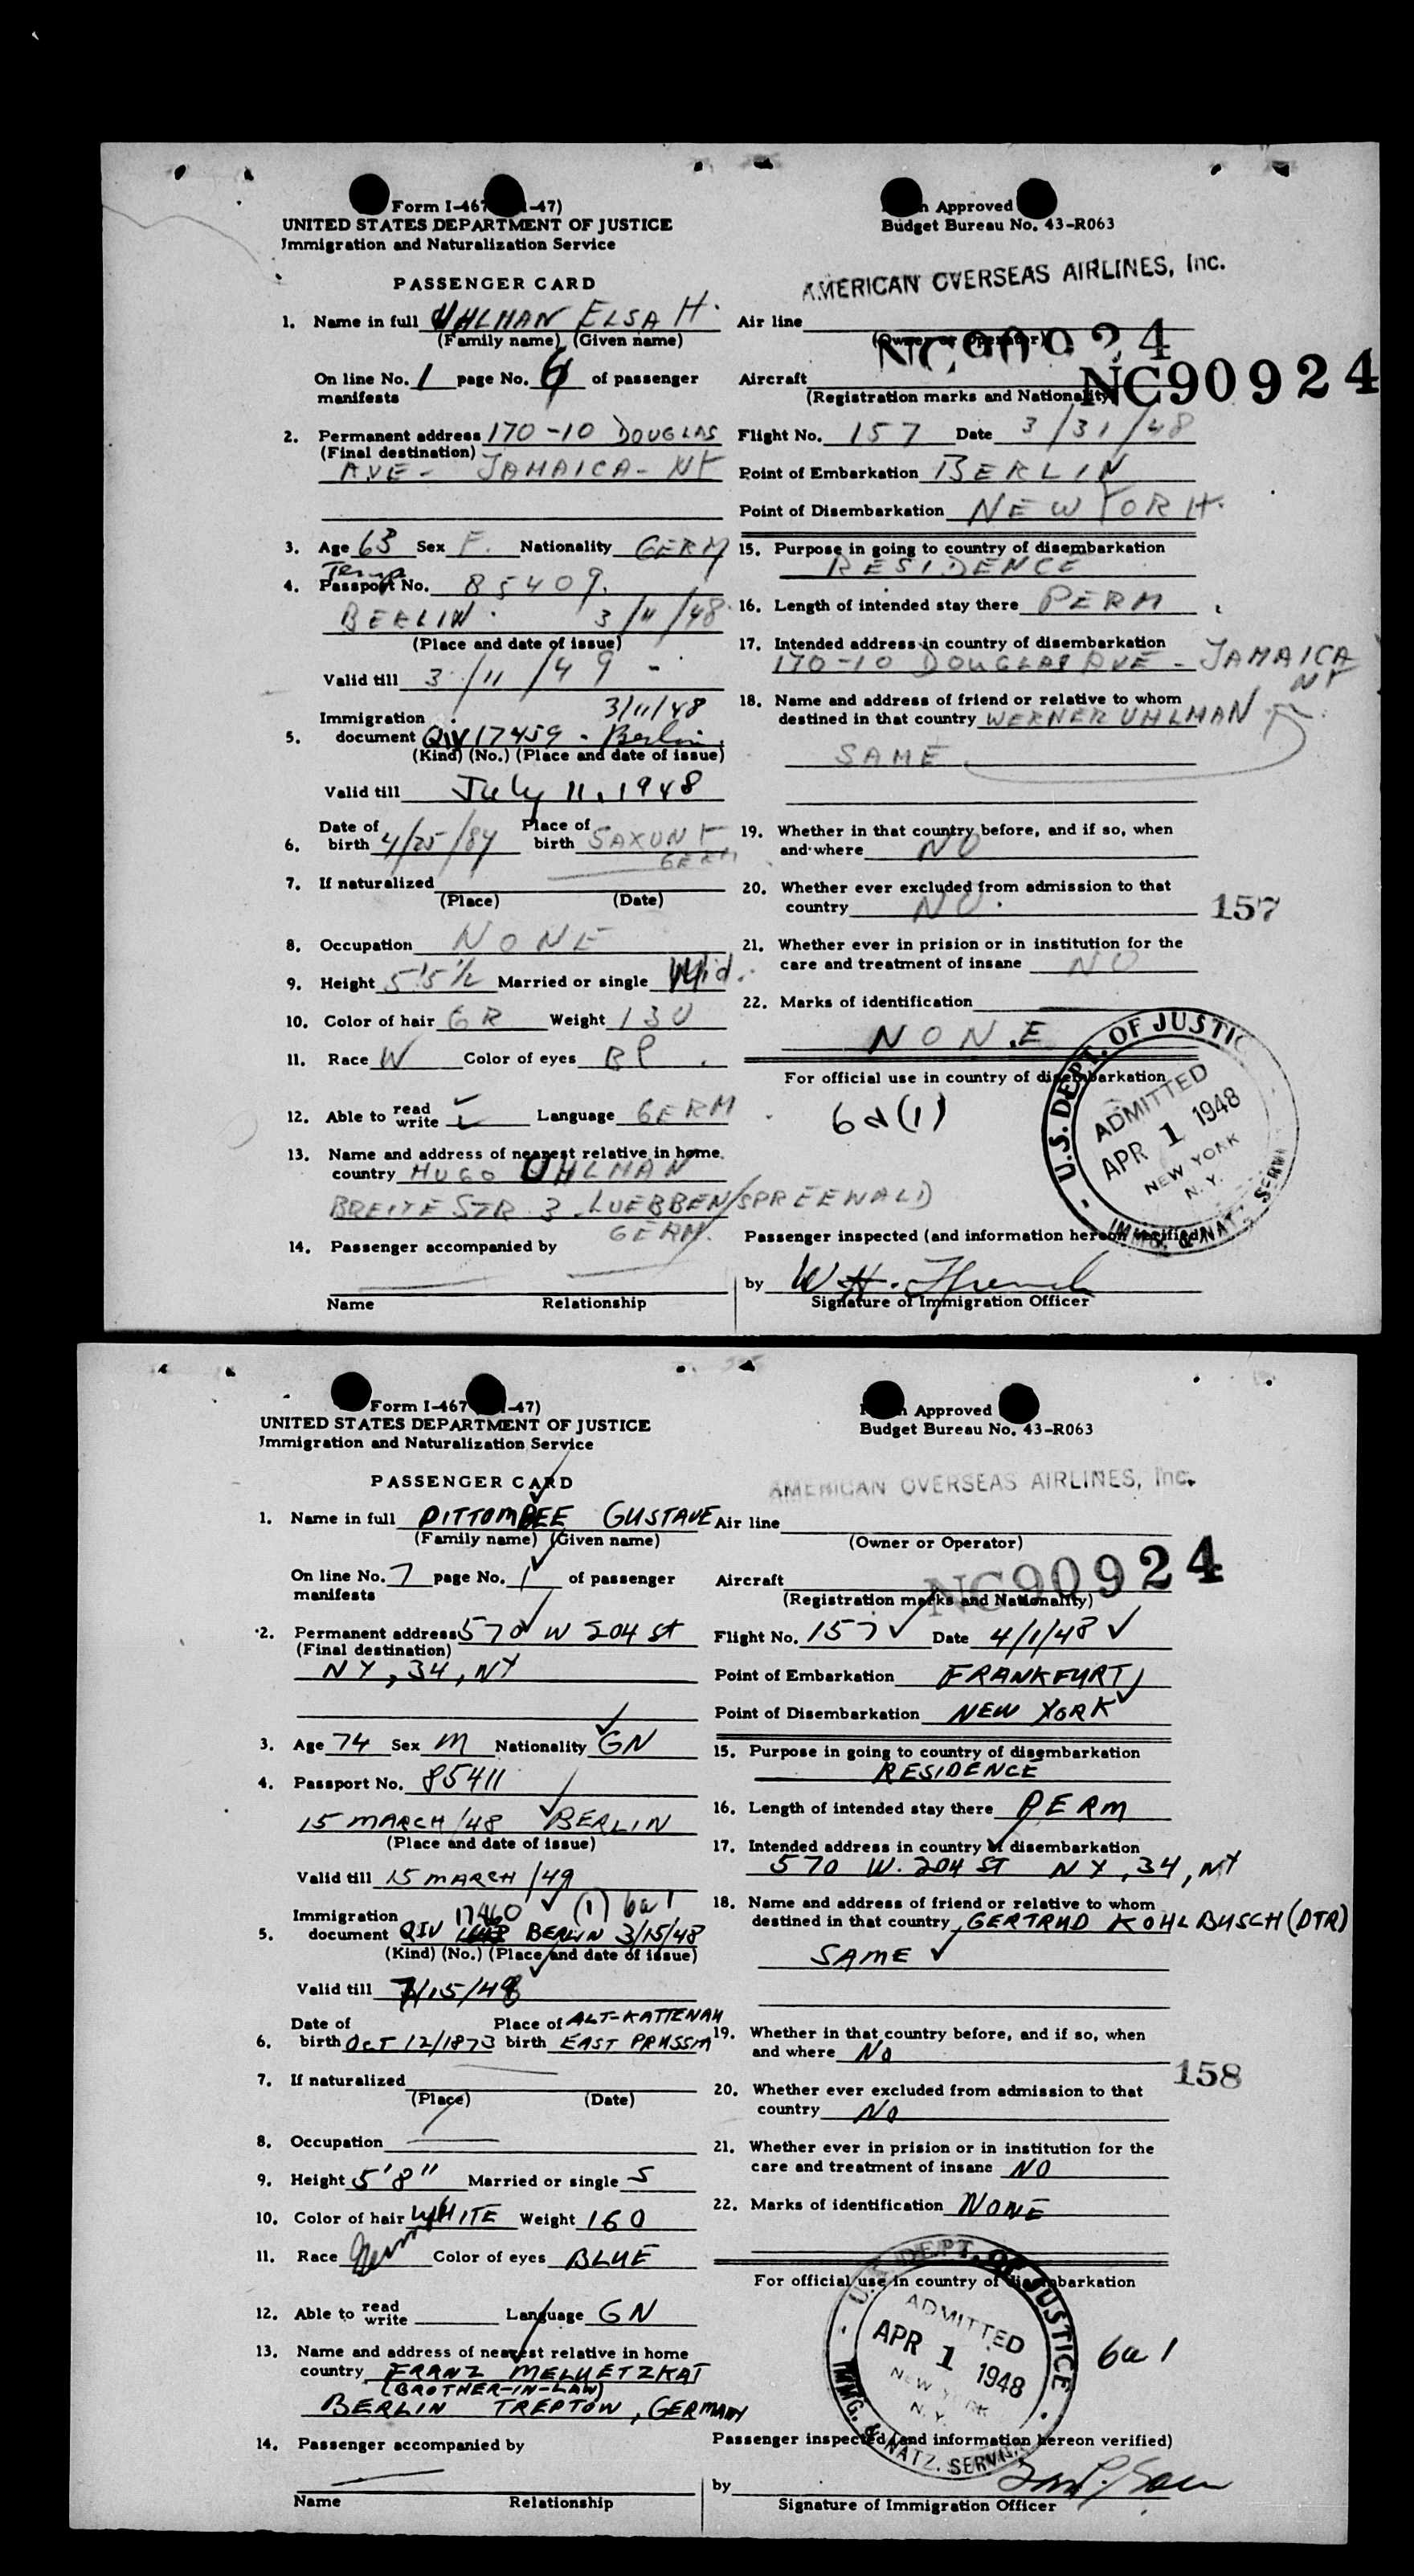 Form I-467 -47)
UNITED STATES DEPARTMENT OF JUSTICE
Immigration and Naturalization Service
PASSENGER CARD
1. Name in full UHLMAN ELSA H.
(Family name) (Given name)
On line No. 1 page No. 6 of passenger
manifests
2. Permanent address 170-10 DOUGLAS
(Final destination)
AVE- JAMAICA- NY
3. Age 63 Sex F. Nationality GERM
Temp
4. Passport No. 85409.
BERLIN. 3/11/48.
(Place and date of issue)
Valid till 3/11/49 -
3/11/48
Immigration
5. document QIV 17459 - Berlin
(Kind) (No.) (Place and date of issue)
Valid till July 11, 1948
6. Date of birth 4/25/84 Place of birth SAXONY
GERM
7. If naturalized
(Place) (Date)
8. Occupation NONE
9. Height 5'5½ Married or single Wid.
10. Color of hair GR Weight 130
11. Race W Color of eyes Bl.
12. Able to read write Language GERM
13. Name and address of nearest relative in home
country HUGO UHLMAN
BREITE STR 3. LUEBBEN/SPREEWALD
GERM.
14. Passenger accompanied by
Name Relationship
Approved
Budget Bureau No. 43-R063
AMERICAN OVERSEAS AIRLINES, Inc.
Air line
(Owner or Operator)
NC90924
Aircraft NC90924
(Registration marks and Nationality)
Flight No. 157 Date 3/31/48
Point of Embarkation BERLIN
Point of Disembarkation NEW YORK
15. Purpose in going to country of disembarkation
RESIDENCE
16. Length of intended stay there PERM
17. Intended address in country of disembarkation
170-10 DOUGLAS AVE - JAMAICA
NY
18. Name and address of friend or relative to whom
destined in that country WERNER UHLMAN
SAME
19. Whether in that country before, and if so, when
and where NO
20. Whether ever excluded from admission to that
country NO.
157
21. Whether ever in prision or in institution for the
care and treatment of insane NO
22. Marks of identification
NONE
For official use in country of disembarkation
6a(1)
U.S. DEPT. OF JUSTICE
ADMITTED
APR 1 1948
NEW YORK
N. Y.
IMMG. & NATZ. SERV
Passenger inspected (and information hereon verified)
by W. H.
Signature of Immigration Officer
Form I-467 -47)
UNITED STATES DEPARTMENT OF JUSTICE
Immigration and Naturalization Service
PASSENGER CARD
1. Name in full PITTOMBEE GUSTAVE
(Family name) (Given name)
On line No. 7 page No. 1 of passenger
manifests
2. Permanent address 570 W 204 St
(Final destination)
NY, 34, NY
3. Age 74 Sex M Nationality GN
4. Passport No. 85411
15 MARCH/48 BERLIN
(Place and date of issue)
Valid till 15 MARCH/49
17460 (1) 6a1
Immigration
5. document QIV BERLIN 3/15/48
(Kind) (No.) (Place and date of issue)
Valid till 7/15/48
6. Date of birth OCT 12/1873 Place of birth ALT-KATTENAU
EAST PRUSSIA
7. If naturalized
(Place) (Date)
8. Occupation
9. Height 5'8" Married or single S
10. Color of hair WHITE Weight 160
11. Race Germ Color of eyes BLUE
12. Able to read write Language GN
13. Name and address of nearest relative in home
country FRANZ MELUETZKAT
(BROTHER-IN-LAW)
BERLIN TREPTOW, GERMANY
14. Passenger accompanied by
Name Relationship
Approved
Budget Bureau No. 43-R063
AMERICAN OVERSEAS AIRLINES, Inc.
Air line
(Owner or Operator)
Aircraft NC90924
(Registration marks and Nationality)
Flight No. 157 Date 4/1/48
Point of Embarkation FRANKFURT
Point of Disembarkation NEW YORK
15. Purpose in going to country of disembarkation
RESIDENCE
16. Length of intended stay there PERM
17. Intended address in country of disembarkation
570 W. 204 ST NY, 34, NY
18. Name and address of friend or relative to whom
destined in that country GERTRUD KOHLBUSCH (DTR)
SAME
19. Whether in that country before, and if so, when
and where No
158
20. Whether ever excluded from admission to that
country No
21. Whether ever in prision or in institution for the
care and treatment of insane NO
22. Marks of identification NONE
For official use in country of disembarkation
6a1
U.S. DEPT. OF JUSTICE
ADMITTED
APR 1 1948
NEW YORK
N. Y.
IMMG. & NATZ. SERVICE
Passenger inspected (and information hereon verified)
by
Signature of Immigration Officer